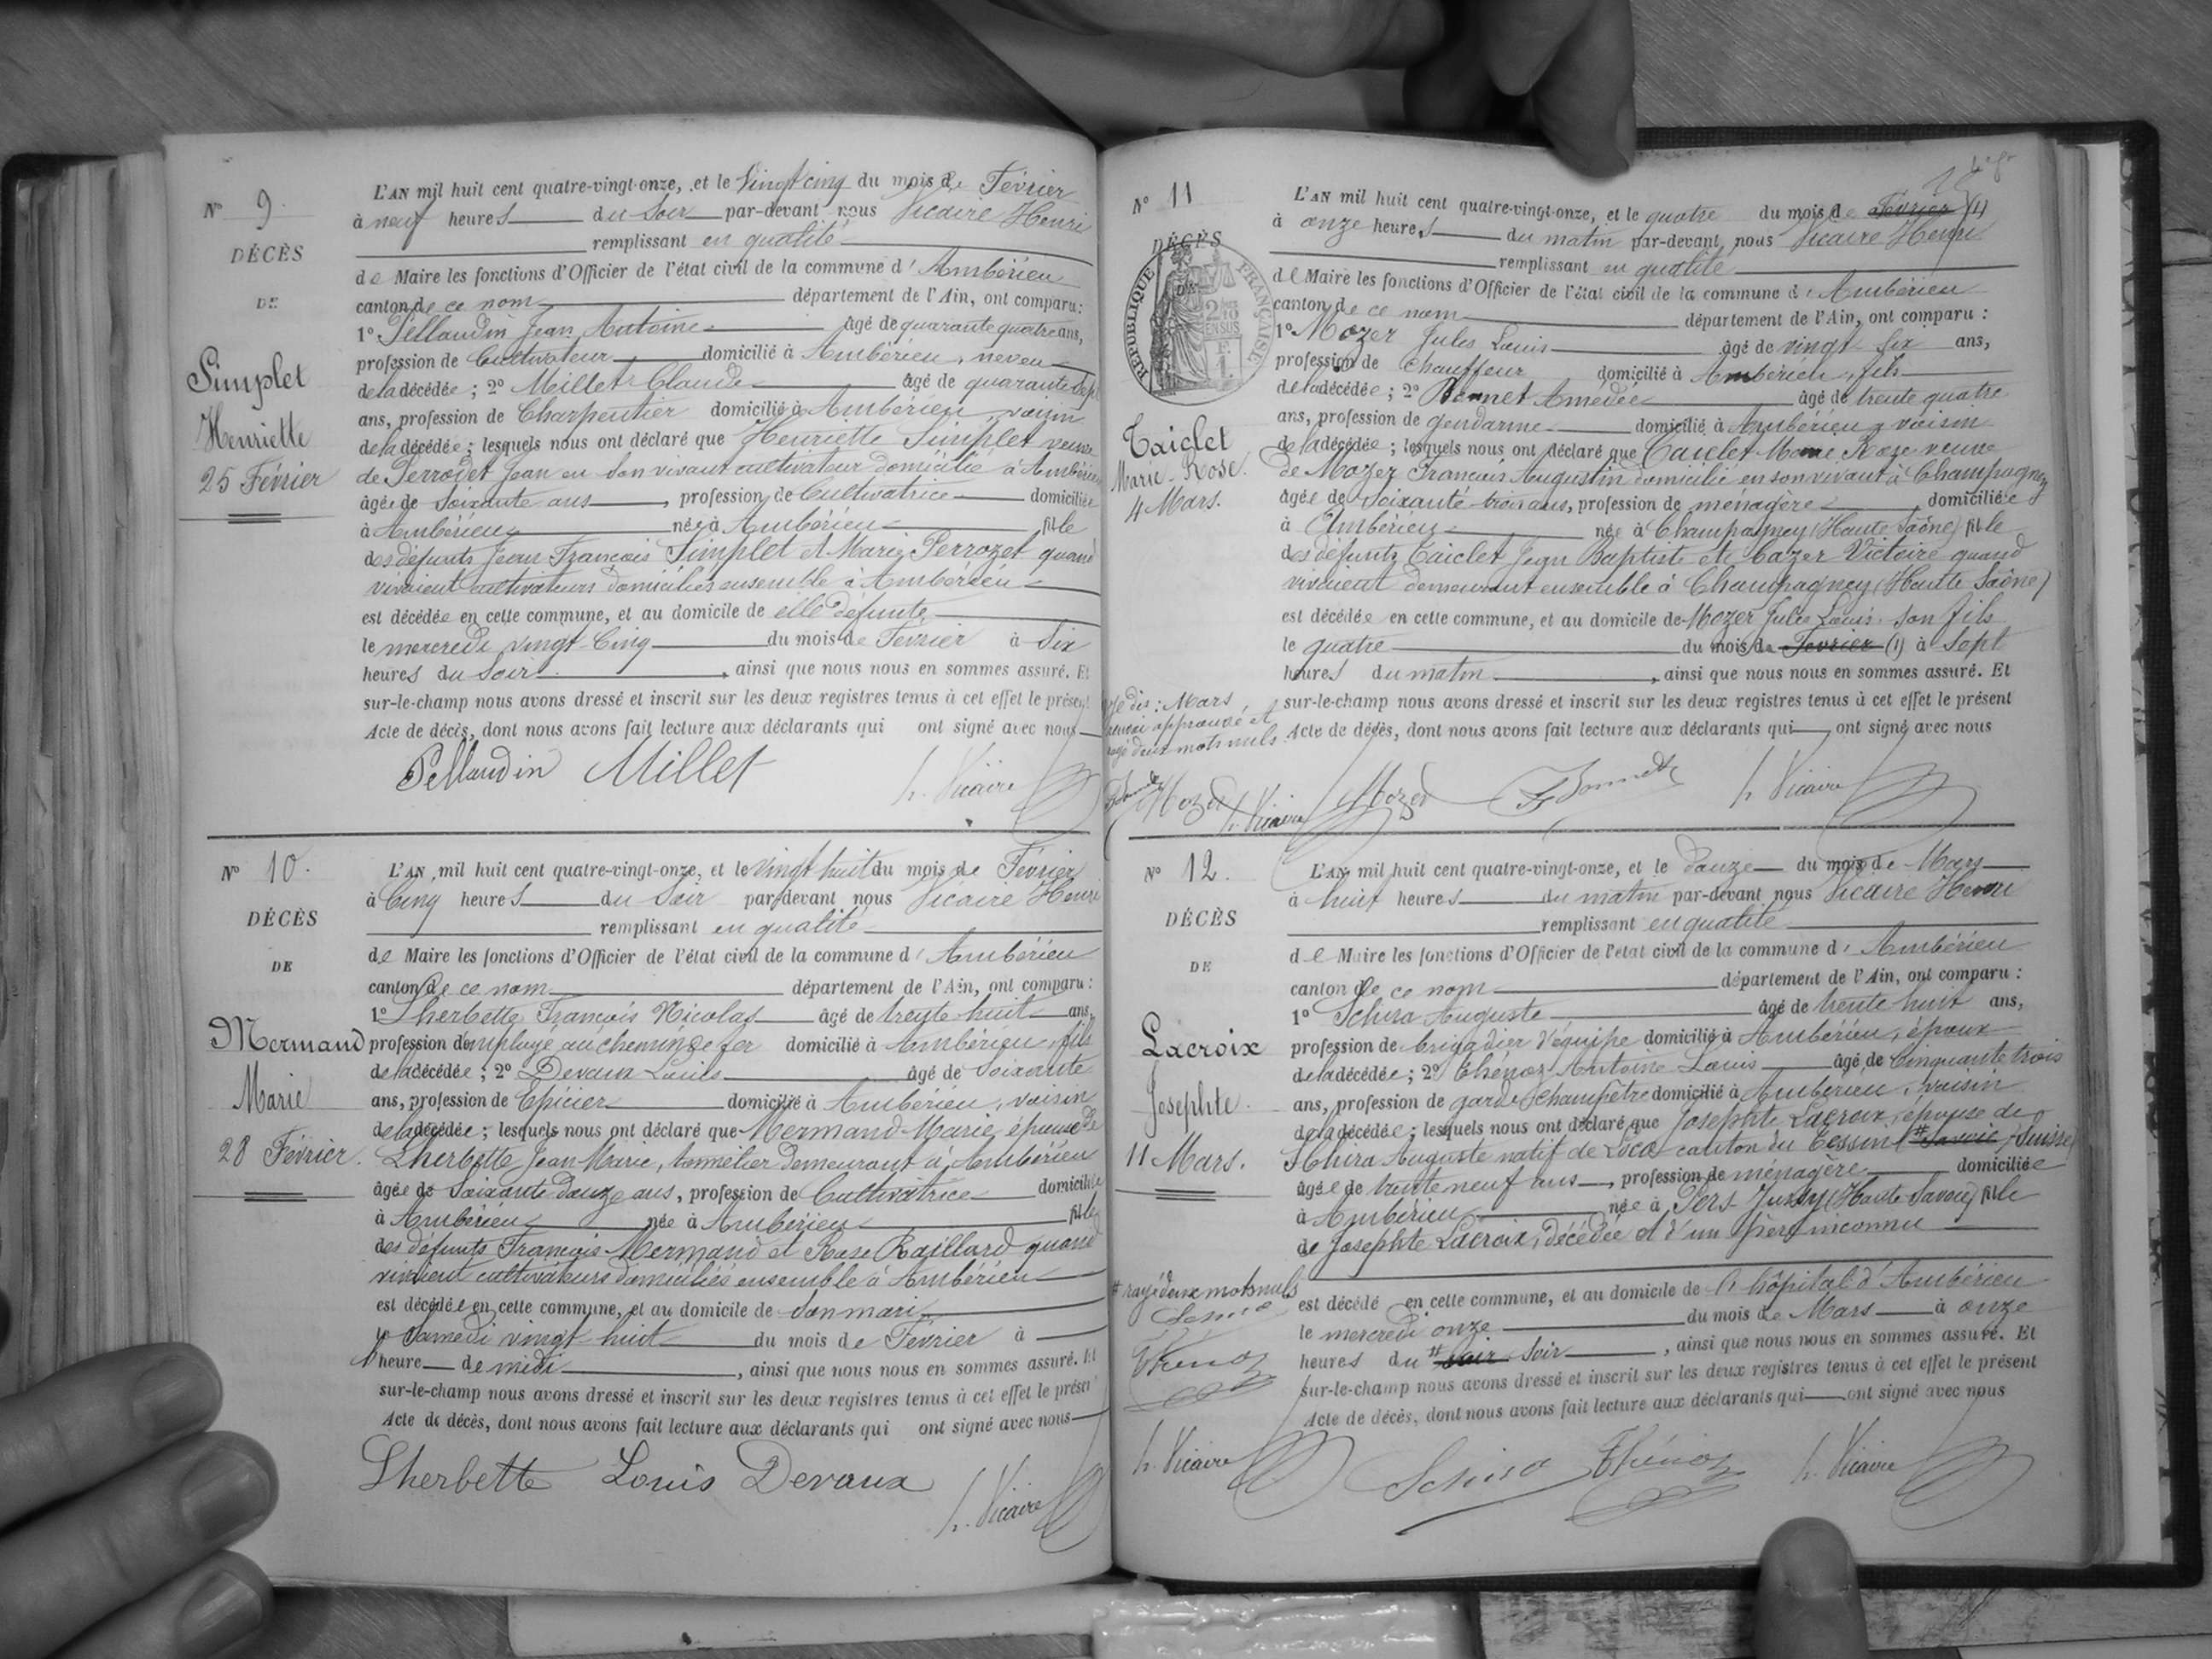 N° 9.
DÉCÈS
DE
Simplet
Henriette
25 Février
L'AN mil huit cent quatre-vingt-onze, et le Vingt cinq du mois de Février
à neuf heures du Soir par-devant nous Vicaire Henri
remplissant en qualité
de Maire les fonctions d'Officier de l'état civil de la commune d'Ambérieu
canton de ce nom département de l'Ain, ont comparu :
1° Pellaudin Jean Antoine âgé de quarante quatre ans,
profession de Cultivateur domicilié à Ambérieu, neveu
de la décédée ; 2° Millet Claude âgé de quarante sept
ans, profession de Charpentier domicilié à Ambérieu, voisin
de la décédée ; lesquels nous ont déclaré que Henriette Simplet veuve
de Perrodet Jean en son vivant cultivateur domicilié à Ambérieu
âgée de Soixante ans, profession de Cultivatrice domiciliée
à Ambérieu née à Ambérieu fille
des défunts Jean François Simplet et Marie Perrozet quand
vivaient cultivateurs domiciliés ensemble à Ambérieu
est décédée en cette commune, et au domicile de elle défunte
le mercredi vingt-Cinq du mois de Février à Six
heures du Soir, ainsi que nous nous en sommes assuré. Et
sur-le-champ nous avons dressé et inscrit sur les deux registres tenus à cet effet le présent
Acte de décès, dont nous avons fait lecture aux déclarants qui ont signé avec nous
Pellaudin Millet h. Vicaire
N° 10.
DÉCÈS
DE
Mermand
Marie
28 Février.
L'AN mil huit cent quatre-vingt-onze, et le Vingt huit du mois de Février
à Cinq heures du Soir par-devant nous Vicaire Henri
remplissant en qualité
de Maire les fonctions d'Officier de l'état civil de la commune d'Ambérieu
canton de ce nom département de l'Ain, ont comparu :
1° Lherbette François Nicolas âgé de trente huit ans,
profession d'employé au chemin de fer domicilié à Ambérieu, fils
de la décédée ; 2° Devaux Louis âgé de Soixante
ans, profession de Epicier domicilié à Ambérieu, voisin
de la décédée ; lesquels nous ont déclaré que Mermand Marie, épouse de
Lherbette Jean Marie, tonnelier demeurant à Ambérieu
âgée de Soixante douze ans, profession de Cultivatrice domiciliée
à Ambérieu née à Ambérieu fille
des défunts François Mermand et Rose Raillard quand
vivaient cultivateurs domiciliés ensemble à Ambérieu
est décédée en cette commune, et au domicile de son mari
le Samedi vingt-huit du mois de Février à
heure de midi, ainsi que nous nous en sommes assuré. Et
sur-le-champ nous avons dressé et inscrit sur les deux registres tenus à cet effet le présent
Acte de décès, dont nous avons fait lecture aux déclarants qui ont signé avec nous
Lherbette Louis Devaux h. Vicaire
N° 11
DÉCÈS
DE
RÉPUBLIQUE FRANÇAISE
Taiclet
Marie-Rose.
4 Mars.
L'AN mil huit cent quatre-vingt-onze, et le quatre du mois de Février (1)
à onze heures du matin par-devant nous Vicaire Henri
remplissant en qualité
de Maire les fonctions d'Officier de l'état civil de la commune d'Ambérieu
canton de ce nom département de l'Ain, ont comparu :
1° Mozer Jules Louis âgé de vingt six ans,
profession de Chauffeur domicilié à Ambérieu, fils
de la décédée ; 2° Bonnet Amédée âgé de trente quatre
ans, profession de gendarme domicilié à Ambérieu, voisin
de la décédée ; lesquels nous ont déclaré que Taiclet Marie Roze veuve
de Mozer François Augustin domicilié en son vivant à Champagney
âgée de Soixante trois ans, profession de ménagère domiciliée
à Ambérieu née à Champagney (Haute Saône) fille
des défunts Taiclet Jean Baptiste et Cazer Victoire quand
vivaient demeurant ensemble à Champagney (Haute Saône)
est décédée en cette commune, et au domicile de Mozer Jules Louis son fils
le quatre du mois de Fevrier (1) à Sept
heures du matin, ainsi que nous nous en sommes assuré. Et
sur-le-champ nous avons dressé et inscrit sur les deux registres tenus à cet effet le présent
Acte de décès, dont nous avons fait lecture aux déclarants qui ont signé avec nous
dis : Mars
renvoi approuvé et
rayé deux mots nuls
Mozer h. Vicaire Mozer Bonnet h. Vicaire
N° 12.
DÉCÈS
DE
Lacroix
Josephte.
11 Mars.
L'AN mil huit cent quatre-vingt-onze, et le douze du mois de Mars
à huit heures du matin par-devant nous Vicaire Henri
remplissant en qualité
de Maire les fonctions d'Officier de l'état civil de la commune d'Ambérieu
canton de ce nom département de l'Ain, ont comparu :
1° Schira Auguste âgé de trente huit ans,
profession de brigadier d'équipe domicilié à Ambérieu, époux
de la décédée ; 2° Thénoz Antoine Louis âgé de Cinquante trois
ans, profession de garde champêtre domicilié à Ambérieu, voisin
de la décédée ; lesquels nous ont déclaré que Josephte Lacroix, épouse de
Schira Auguste natif de Loco canton du Tessin (# Savoie) Suisse)
âgée de trente neuf ans, profession de ménagère domiciliée
à Ambérieu née à Pers-Jussy (Haute Savoie) fille
de Josephte Lacroix, décédée et d'un père inconnu
est décédé en cette commune, et au domicile de l'hôpital d'Ambérieu
le mercredi onze du mois de Mars à onze
heures du # Soir Soir, ainsi que nous nous en sommes assuré. Et
sur-le-champ nous avons dressé et inscrit sur les deux registres tenus à cet effet le présent
Acte de décès, dont nous avons fait lecture aux déclarants qui ont signé avec nous
# rayé deux mots nuls
Thénoz
h. Vicaire Schira Thénoz h. Vicaire